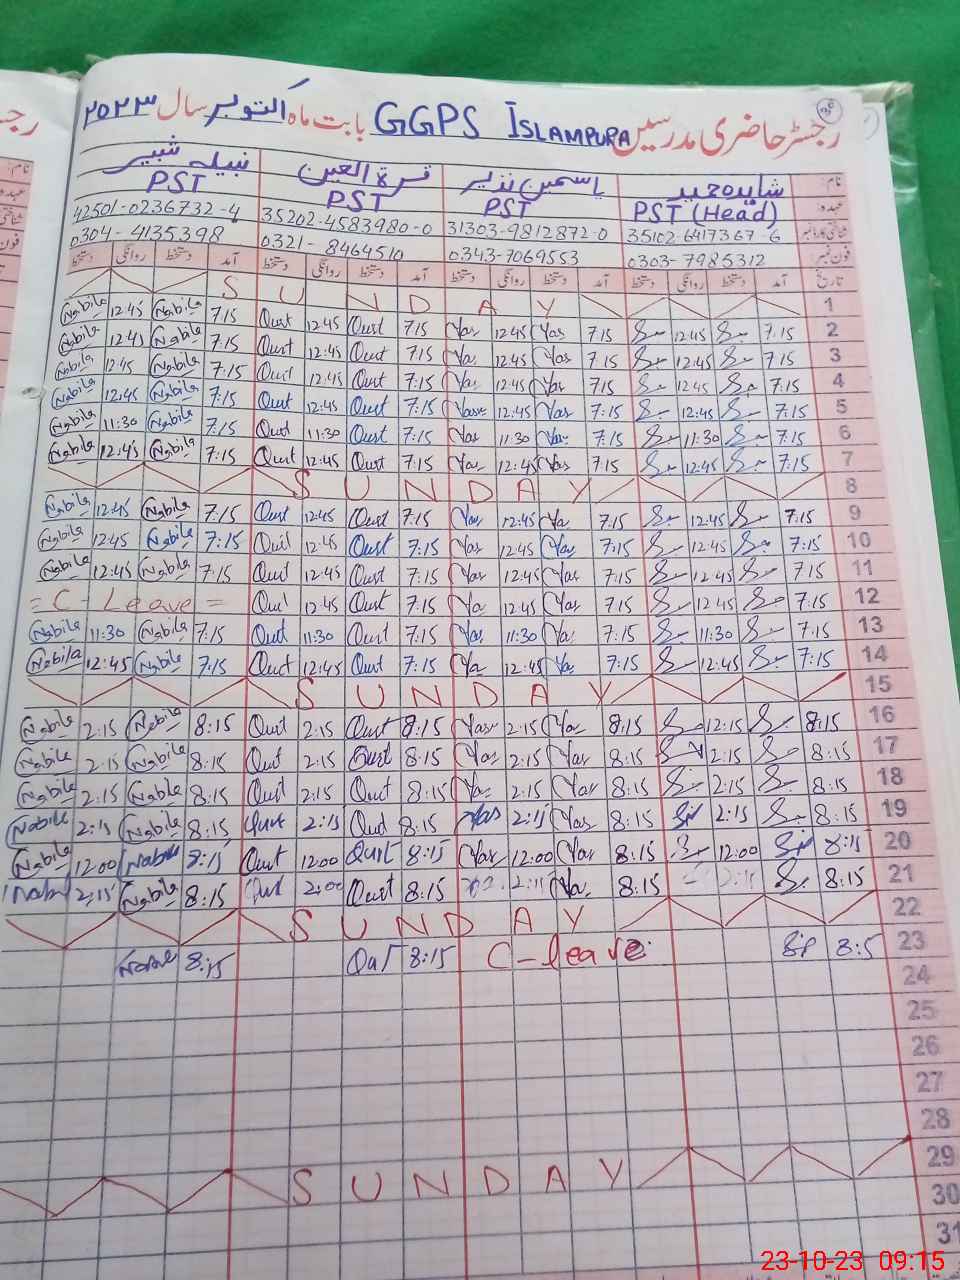 رجسٹر حاضری مدرسین GGPS ISLAMPURA بابت ماہ اکتوبر سال ۲۰۲۳
نام: شاہدہ حمید یاسمین نذیر قرۃ العین نبیلہ شبیر
عہدہ: PST (Head) PST PST PST
42501-0236732-4 35202-4583980-0 31303-9812872-0 35102-6417367-6
0304-4135398 0321-8464510 0343-7069553 0303-7985312
تاریخ آمد دستخط روانگی دستخط آمد دستخط روانگی دستخط آمد دستخط روانگی دستخط آمد دستخط روانگی دستخط
SUNDAY 1
Nabila 12:45 Nabila 7:15 Qurt 12:45 Qurt 7:15 Yas 12:45 Yas 7:15 12:45 7:15 2
Nabila 12:45 Nabila 7:15 Qurt 12:45 Qurt 7:15 Yas 12:45 Yas 7:15 12:45 7:15 3
Nabila 12:45 Nabila 7:15 Qurt 12:45 Qurt 7:15 Yas 12:45 Yas 7:15 12:45 7:15 4
Nabila 12:45 Nabila 7:15 Qurt 12:45 Qurt 7:15 Yas 12:45 Yas 7:15 12:45 7:15 5
Nabila 11:30 Nabila 7:15 Qurt 11:30 Qurt 7:15 Yas 11:30 Yas 7:15 11:30 7:15 6
Nabila 12:45 Nabila 7:15 Qurt 12:45 Qurt 7:15 Yas 12:45 Yas 7:15 12:45 7:15 7
SUNDAY 8
Nabila 12:45 Nabila 7:15 Qurt 12:45 Qurt 7:15 Yas 12:45 Ya 7:15 12:45 7:15 9
Nabila 12:45 Nabila 7:15 Qurt 12:45 Qurt 7:15 Yas 12:45 Yas 7:15 12:45 7:15 10
Nabila 12:45 Nabila 7:15 Qurt 12:45 Qurt 7:15 Yas 12:45 Yas 7:15 12:45 7:15 11
= C - Leave = Qurt 12:45 Qurt 7:15 Ya 12:45 Ya 7:15 12:45 7:15 12
Nabila 11:30 Nabila 7:15 Qurt 11:30 Qurt 7:15 Ya 11:30 Ya 7:15 11:30 7:15 13
Nabila 12:45 Nabila 7:15 Qurt 12:45 Qurt 7:15 Ya 12:45 Ya 7:15 12:45 7:15 14
SUNDAY 15
Nabila 2:15 Nabila 8:15 Qurt 2:15 Qurt 8:15 Yas 2:15 Yas 8:15 12:15 8:15 16
Nabila 2:15 Nabila 8:15 Qurt 2:15 Qurt 8:15 Yas 2:15 Yas 8:15 2:15 8:15 17
Nabila 2:15 Nabila 8:15 Qurt 2:15 Qurt 8:15 Yas 2:15 Yas 8:15 2:15 8:15 18
Nabila 2:15 Nabila 8:15 Qurt 2:15 Qurt 8:15 Yas 2:15 Yas 8:15 2:15 8:15 19
Nabila 12:00 Nabila 8:15 Qurt 12:00 Qurt 8:15 Yas 12:00 Yas 8:15 12:00 8:15 20
Nabila 2:15 Nabila 8:15 Qurt 2:00 Qurt 8:15 2:15 Ya 8:15 2:15 8:15 21
SUNDAY 22
8:15 8:15 C-leave 8:5 23
24
25
26
27
28
SUNDAY 29
30
31
23-10-23 09:15